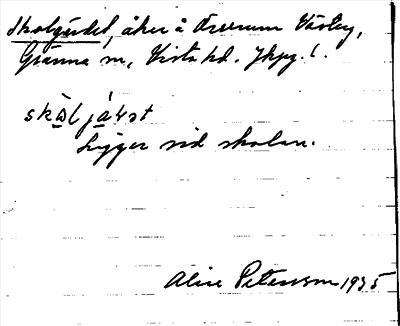 Skolgärdet, åker å Örserum Västerg,
Gränna sn, Vista hd. Jkpg. l.
Ligger vid skolan.
Alice Petersson 1935